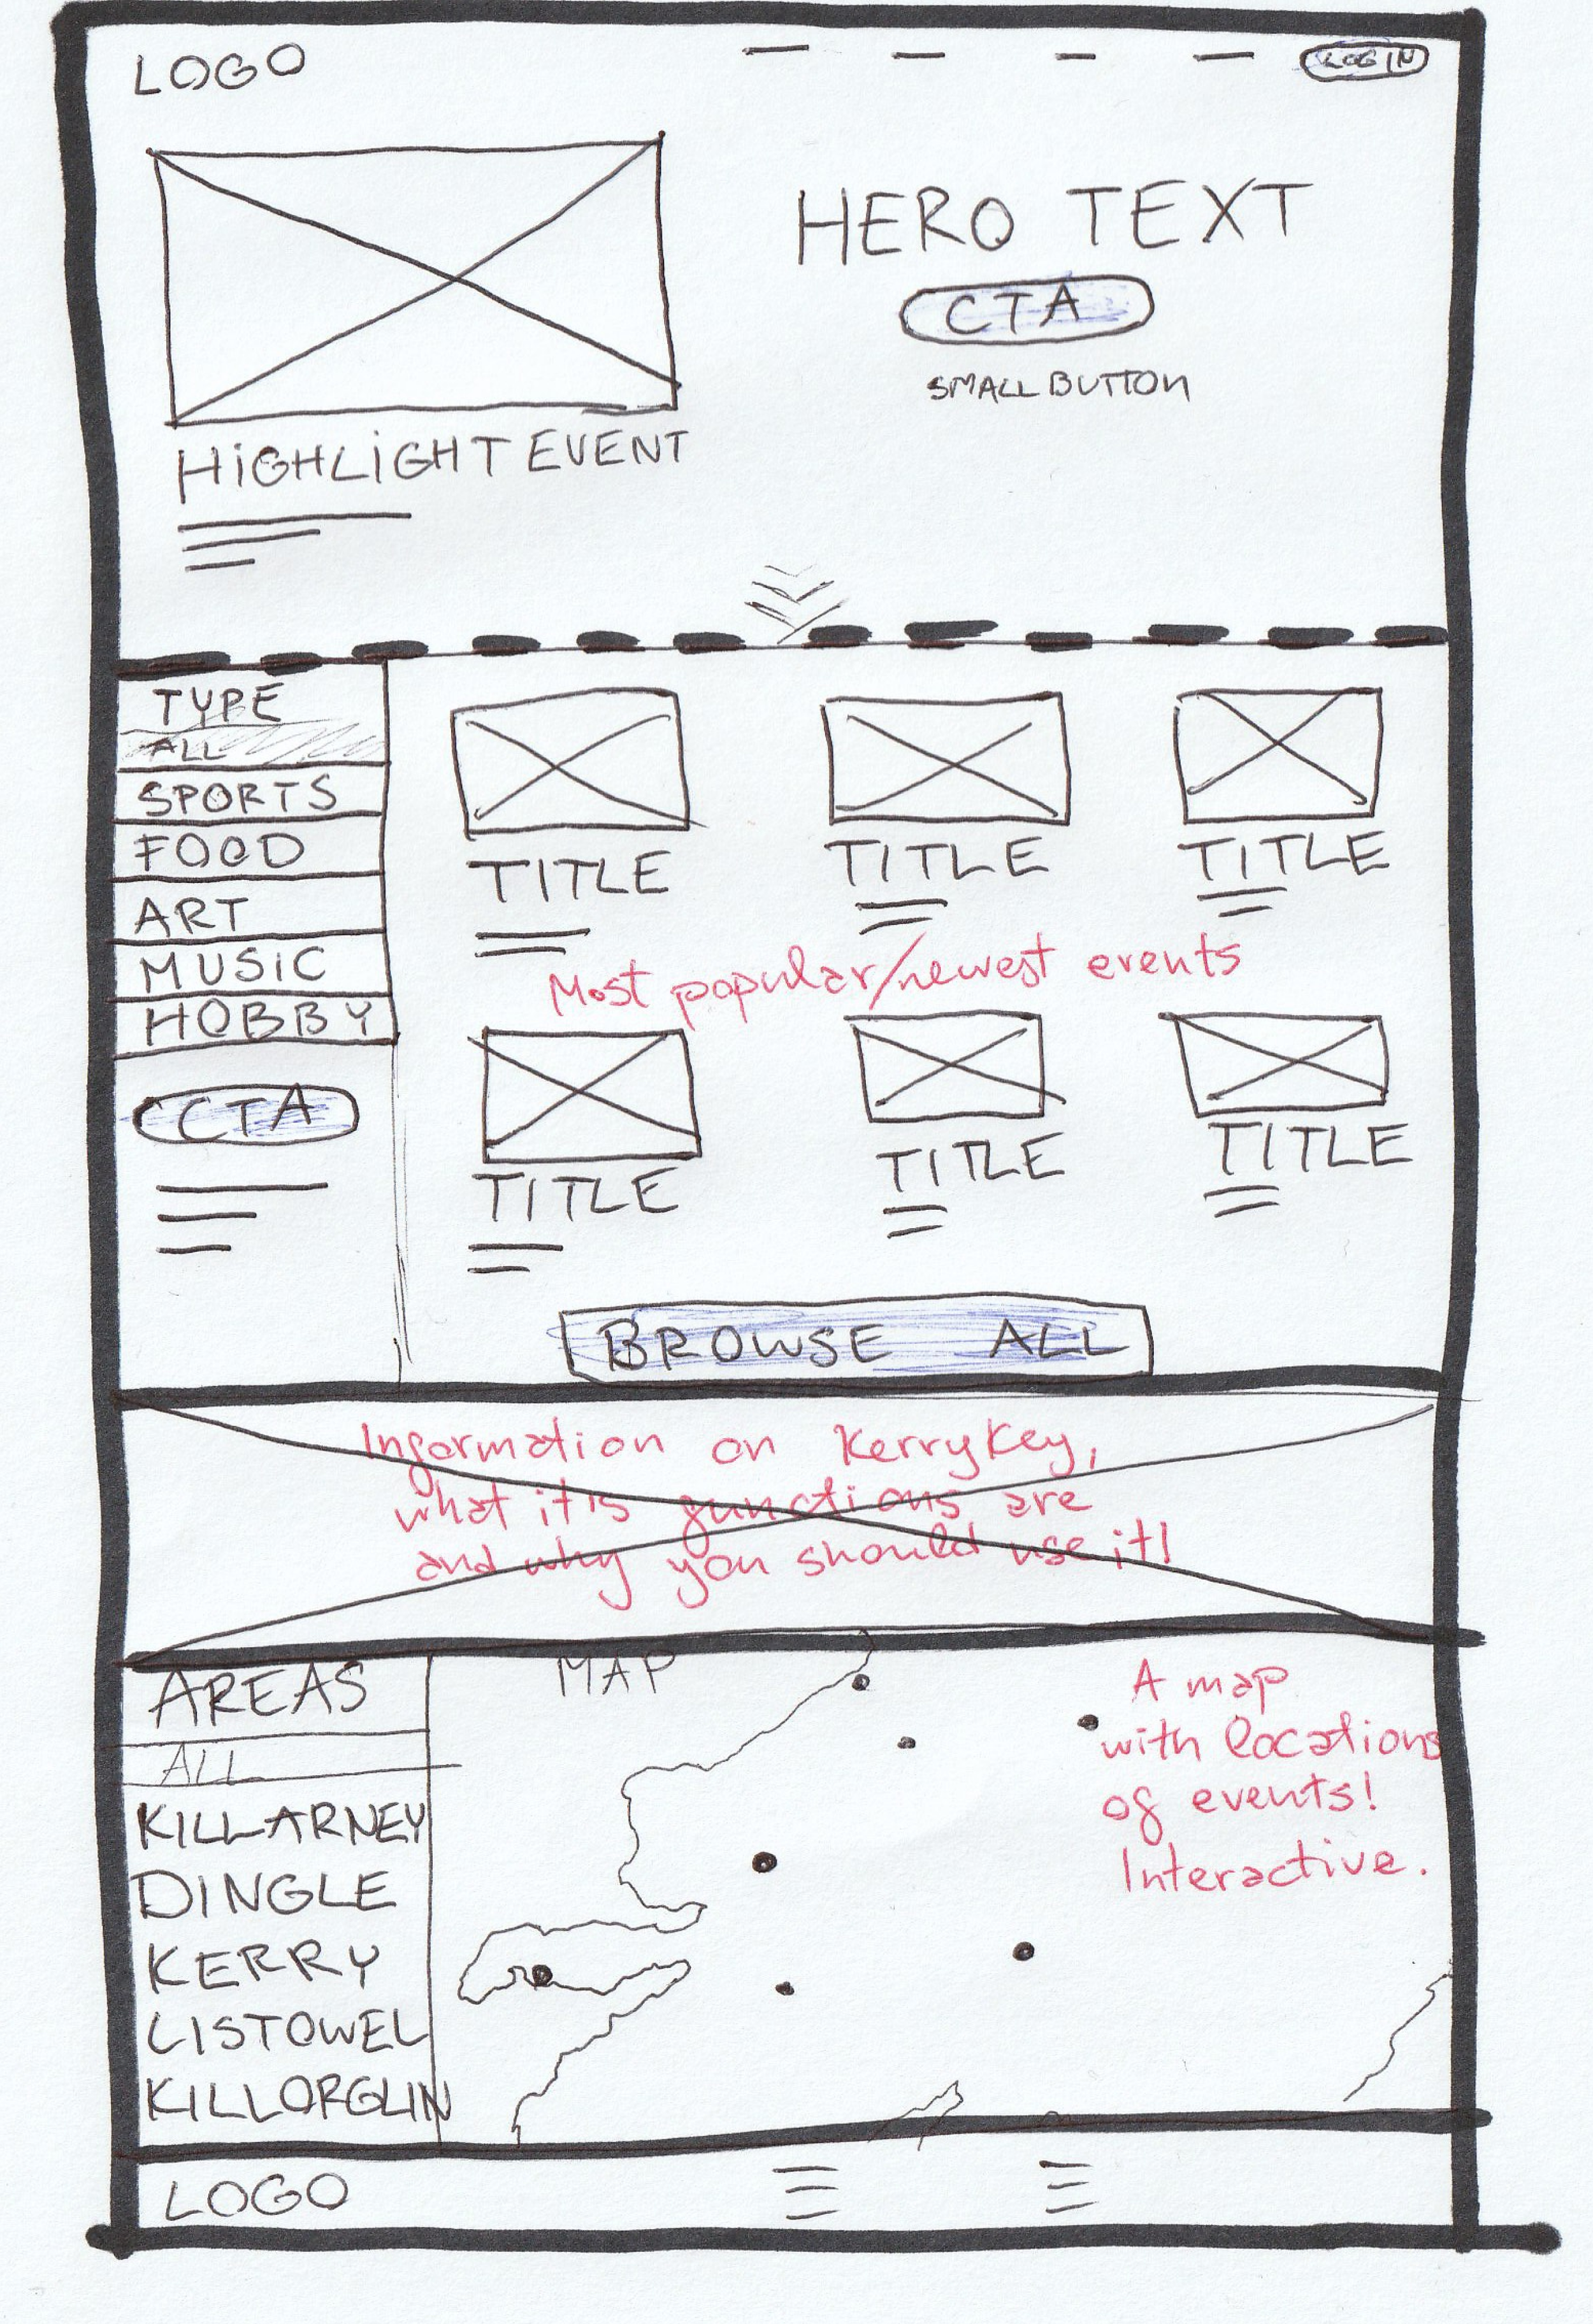 LOGO
LOGIN
HERO TEXT
CTA
SMALL BUTTON
HIGHLIGHT EVENT
TYPE
ALL
SPORTS
FOOD
ART
MUSIC
HOBBY
CTA
TITLE
TITLE
TITLE
Most popular/newest events
TITLE
TITLE
TITLE
BROWSE ALL
Information on KerryKey,
what it's functions are
and why you should use it!
AREAS
ALL
KILLARNEY
DINGLE
KERRY
LISTOWEL
KILLORGLIN
MAP
A map
with locations
of events!
Interactive.
LOGO